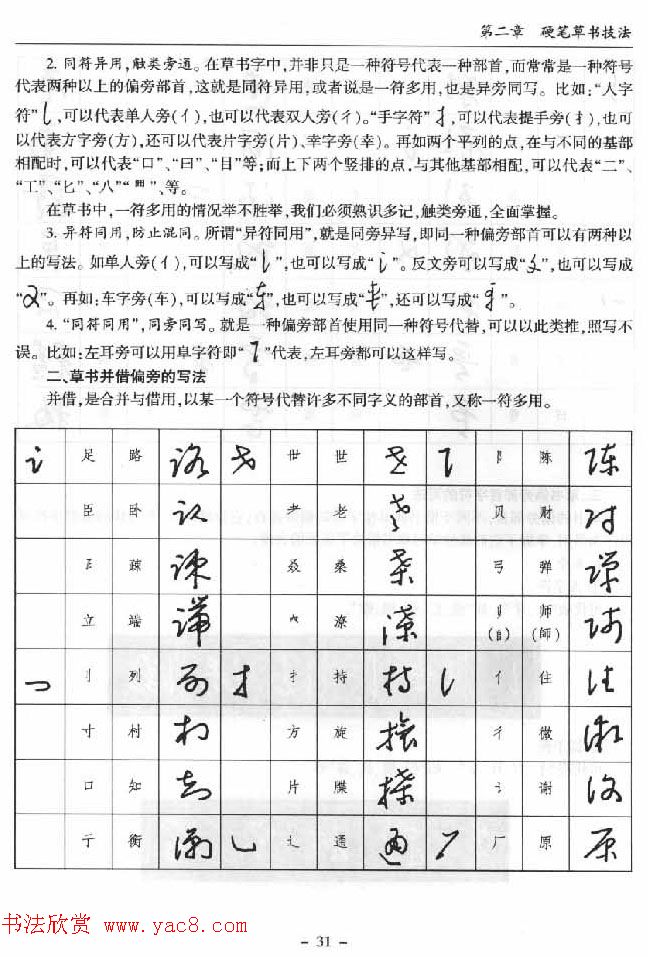 第二章 硬笔草书技法
2. 同符异用,触类旁通。在草书字中,并非只是一种符号代表一种部首,而常常是一种符号
代表两种以上的偏旁部首,这就是同符异用,或者说是一符多用,也是异旁同写。比如:“人字
符” ,可以代表单人旁(亻),也可以代表双人旁(彳)。“手字符” ,可以代表提手旁(扌),也可
以代表方字旁(方),还可以代表片字旁(片)、幸字旁(幸)。再如两个平列的点,在与不同的基部
相配时,可以代表“口”、“曰”、“目”等;而上下两个竖排的点,与其他基部相配,可以代表“二”、
“工”、“匕”、“八”“ ”、等。
在草书中,一符多用的情况举不胜举,我们必须熟识多记,触类旁通,全面掌握。
3. 异符同用,防止混同。所谓“异符同用”,就是同旁异写,即同一种偏旁部首可以有两种以
上的写法。如单人旁(亻),可以写成“ ”,也可以写成“ ”。反文旁可以写成“ ”,也可以写成
“ ”。再如:车字旁(车),可以写成“ ”,也可以写成“ ”,还可以写成“ ”。
4. “同符同用”,同旁同写。就是一种偏旁部首使用同一种符号代替,可以以此类推,照写不
误。比如:左耳旁可以用阜字符即“ ”代表,左耳旁都可以这样写。
二、草书并借偏旁的写法
并借,是合并与借用,以某一个符号代替许多不同字义的部首,又称一符多用。
讠 足 路 路 世 世 世 阝 陈 陈
臣 卧 卧 耂 老 老 贝 财 财
疏 疏 叒 桑 桑 弓 弹 弹
立 端 端 潦 潦 (𠂤) 师(師) 师
刂 列 列 扌 扌 持 持 亻 住 住
寸 村 村 方 旋 旋 彳 微 微
口 知 知 片 牒 牒 讠 谢 谢
亍 衡 衡 辶 通 通 厂 原 原
书法欣赏 www.yac8.com
- 31 -